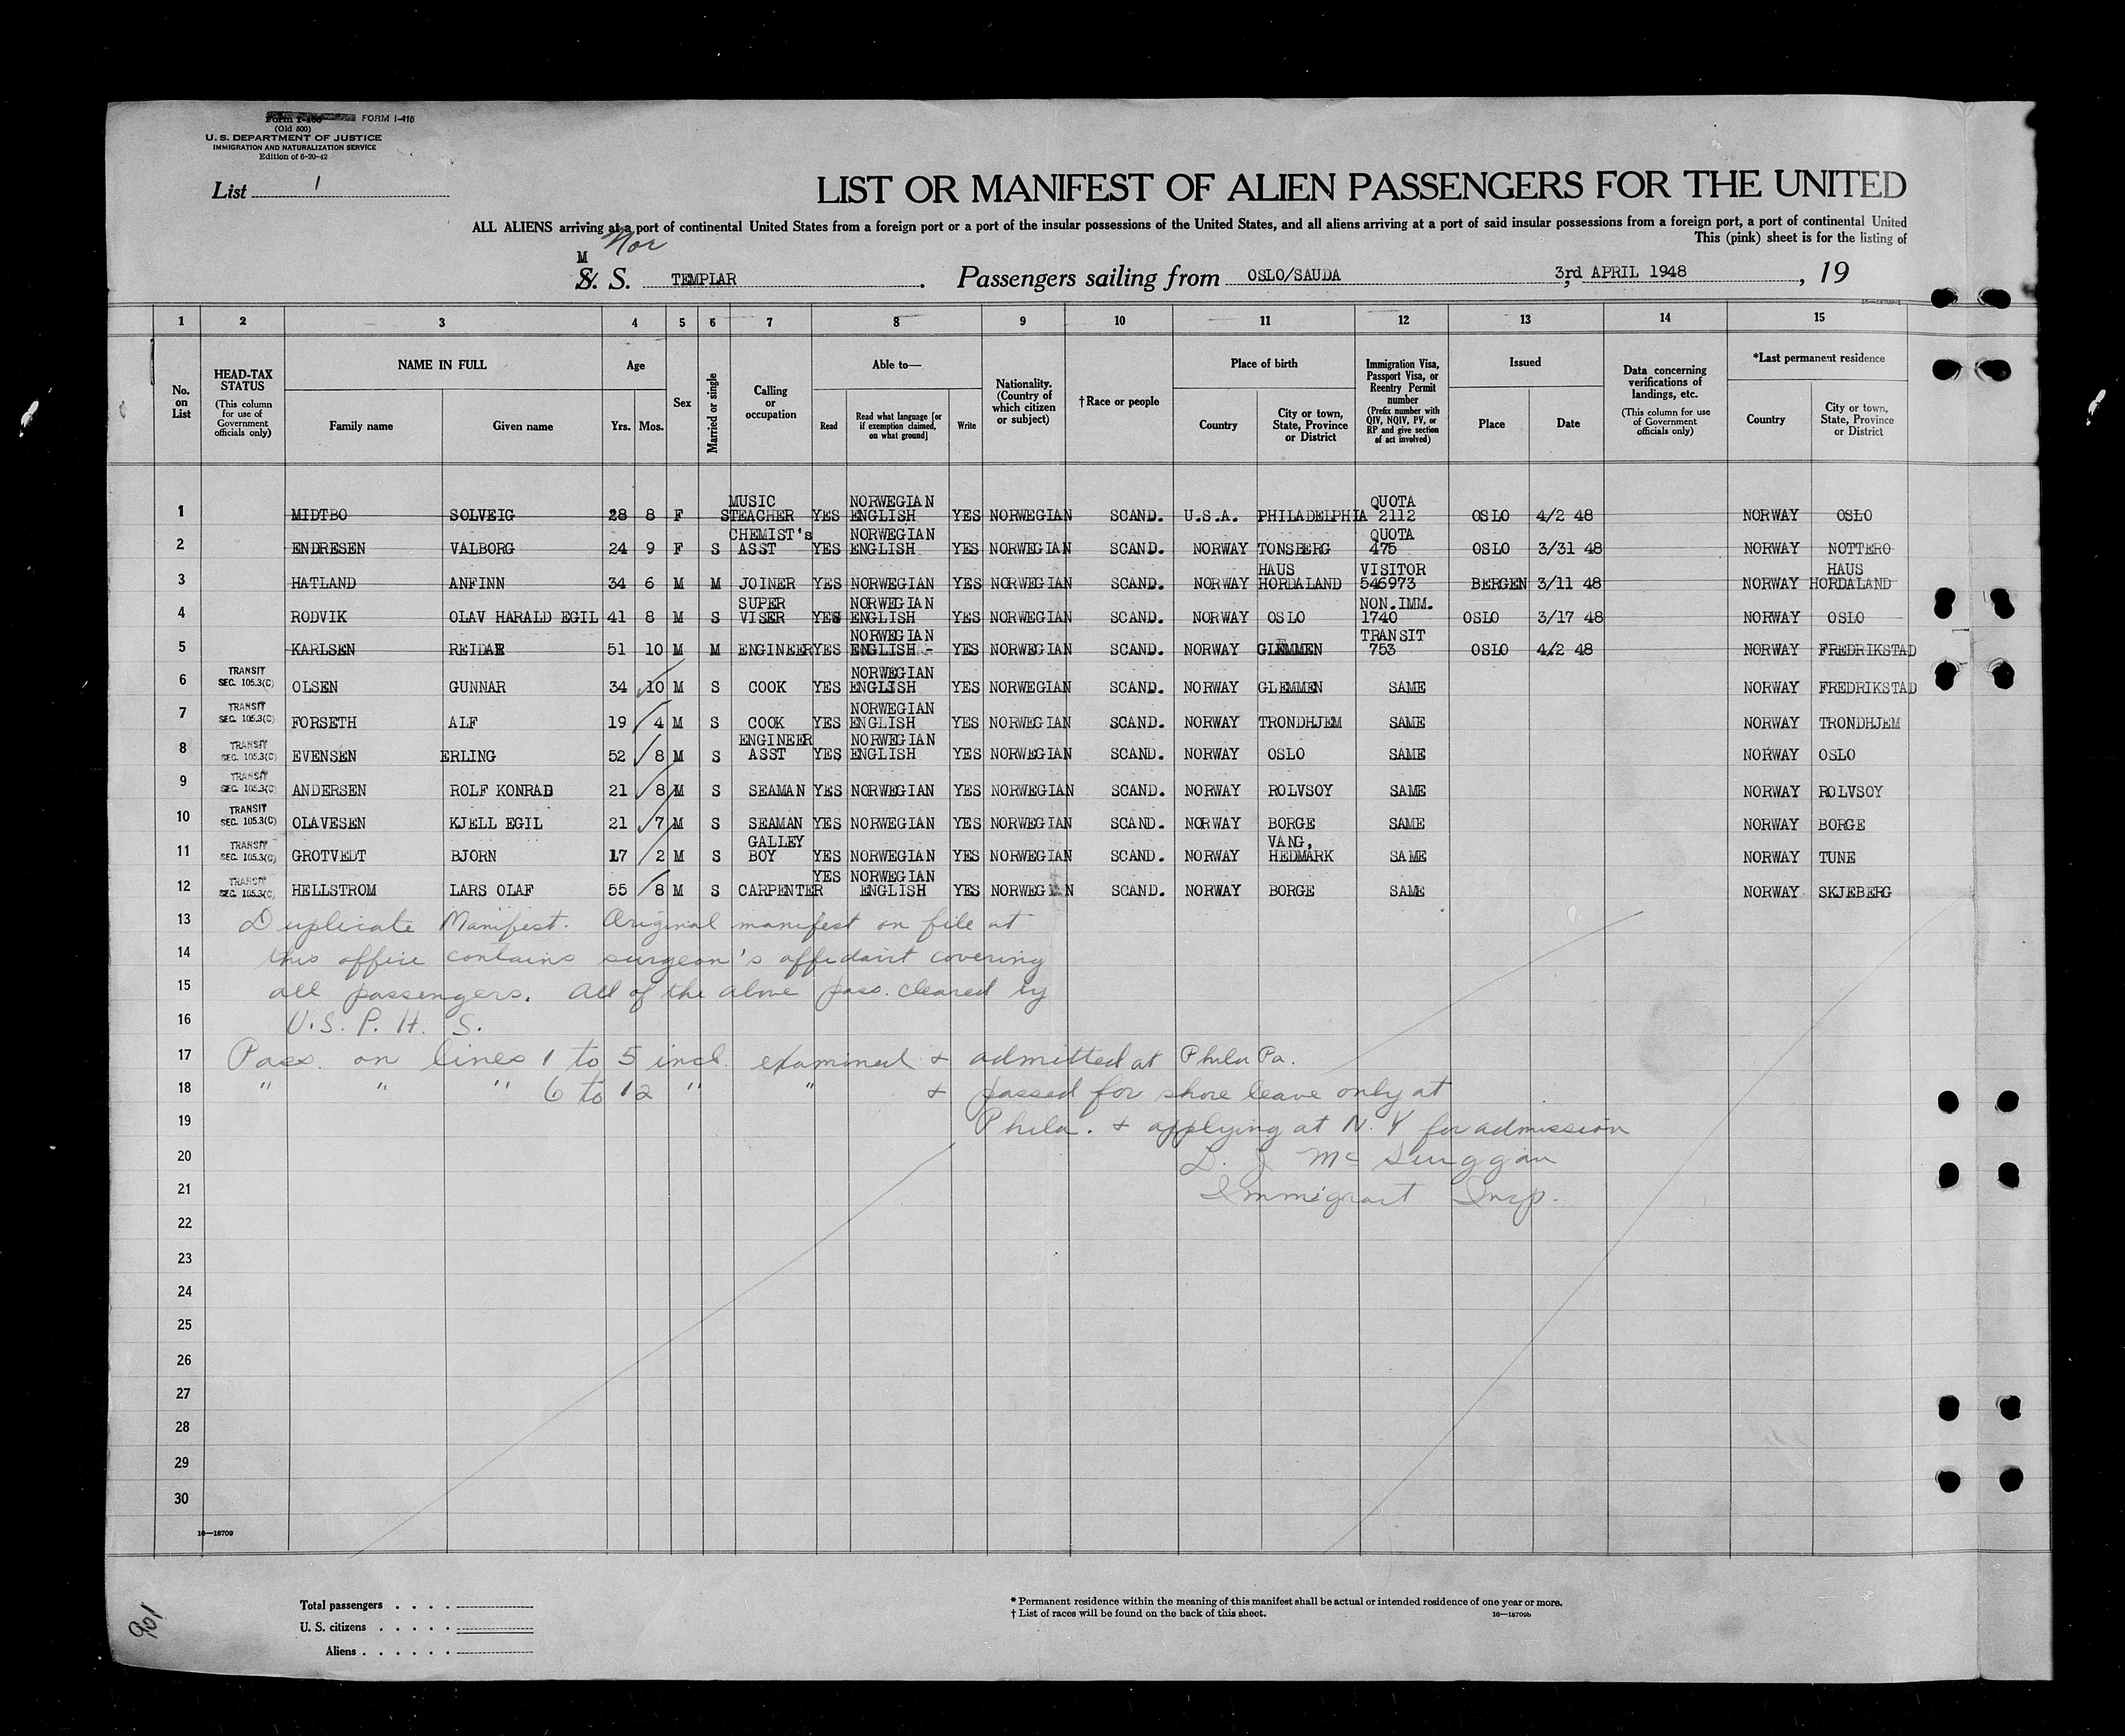 Form I-466 FORM I-415
(Old 500)
U. S. DEPARTMENT OF JUSTICE
IMMIGRATION AND NATURALIZATION SERVICE
Edition of 6-20-42
List 1
LIST OR MANIFEST OF ALIEN PASSENGERS FOR THE UNITED
ALL ALIENS arriving at a port of continental United States from a foreign port or a port of the insular possessions of the United States, and all aliens arriving at a port of said insular possessions from a foreign port, a port of continental United
This (pink) sheet is for the listing of
Nor
M
S. S. TEMPLAR . Passengers sailing from OSLO/SAUDA , 3rd APRIL 1948 , 19
16—18709-1
1 2 3 4 5 6 7 8 9 10 11 12 13 14 15
No. on List
HEAD-TAX STATUS (This column for use of Government officials only)
NAME IN FULL
Family name Given name
Age
Yrs. Mos.
Sex
Married or single
Calling or occupation
Able to—
Read Read what language [or if exemption claimed, on what ground] Write
Nationality. (Country of which citizen or subject)
†Race or people
Place of birth
Country City or town, State, Province or District
Immigration Visa, Passport Visa, or Reentry Permit number (Prefix number with QIV, NQIV, PV, or RP and give section of act involved)
Issued
Place Date
Data concerning verifications of landings, etc. (This column for use of Government officials only)
*Last permanent residence
Country City or town, State, Province or District
MUSIC NORWEGIAN QUOTA
1 MIDTBO SOLVEIG 28 8 F S TEACHER YES ENGLISH YES NORWEGIAN SCAND. U.S.A. PHILADELPHIA 2112 OSLO 4/2 48 NORWAY OSLO
CHEMIST's NORWEGIAN QUOTA
2 ENDRESEN VALBORG 24 9 F S ASST YES ENGLISH YES NORWEGIAN SCAND. NORWAY TONSBERG 475 OSLO 3/31 48 NORWAY NOTTERO
HAUS VISITOR HAUS
3 HATLAND ANFINN 34 6 M M JOINER YES NORWEGIAN YES NORWEGIAN SCAND. NORWAY HORDALAND 546973 BERGEN 3/11 48 NORWAY HORDALAND
SUPER NORWEGIAN NON.IMM.
4 RODVIK OLAV HARALD EGIL 41 8 M S VISER YES ENGLISH YES NORWEGIAN SCAND. NORWAY OSLO 1740 OSLO 3/17 48 NORWAY OSLO
NORWEGIAN TRANSIT
5 KARLSEN REIDAR 51 10 M M ENGINEER YES ENGLISH - YES NORWEGIAN SCAND. NORWAY GLEMMEN 753 OSLO 4/2 48 NORWAY FREDRIKSTAD
TRANSIT NORWEGIAN
6 SEC. 105.3(C) OLSEN GUNNAR 34 10 M S COOK YES ENGLISH YES NORWEGIAN SCAND. NORWAY GLEMMEN SAME NORWAY FREDRIKSTAD
TRANSIT NORWEGIAN
7 SEC. 105.3(C) FORSETH ALF 19 4 M S COOK YES ENGLISH YES NORWEGIAN SCAND. NORWAY TRONDHJEM SAME NORWAY TRONDHJEM
TRANSIT ENGINEER NORWEGIAN
8 SEC. 105.3(C) EVENSEN ERLING 52 8 M S ASST YES ENGLISH YES NORWEGIAN SCAND. NORWAY OSLO SAME NORWAY OSLO
TRANSIT
9 SEC. 105.3(C) ANDERSEN ROLF KONRAD 21 8 M S SEAMAN YES NORWEGIAN YES NORWEGIAN SCAND. NORWAY ROLVSOY SAME NORWAY ROLVSOY
TRANSIT
10 SEC. 105.3(C) OLAVESEN KJELL EGIL 21 7 M S SEAMAN YES NORWEGIAN YES NORWEGIAN SCAND. NORWAY BORGE SAME NORWAY BORGE
TRANSIT GALLEY VANG,
11 SEC. 105.3(C) GROTVEDT BJORN 17 2 M S BOY YES NORWEGIAN YES NORWEGIAN SCAND. NORWAY HEDMARK SAME NORWAY TUNE
TRANSIT YES NORWEGIAN
12 SEC. 105.3(C) HELLSTROM LARS OLAF 55 8 M S CARPENTER ENGLISH YES NORWEGIAN SCAND. NORWAY BORGE SAME NORWAY SKJEBERG
13 Duplicate Manifest. Original manifest on file at
14 this office contains surgeon's affidavit covering
15 all passengers. All of the above pass. cleared by
16 U.S.P.H.S.
17 Pass. on lines 1 to 5 incl. examined + admitted at Phila Pa.
18 " " " 6 to 12 " " + passed for shore leave only at
19 Phila. + applying at N.Y for admission
20
21 Immigrant Insp.
22
23
24
25
26
27
28
29
30
16—18709
Total passengers . . . .
U. S. citizens . . . . .
Aliens . . . . . .
* Permanent residence within the meaning of this manifest shall be actual or intended residence of one year or more.
† List of races will be found on the back of this sheet.
16—18709b
901